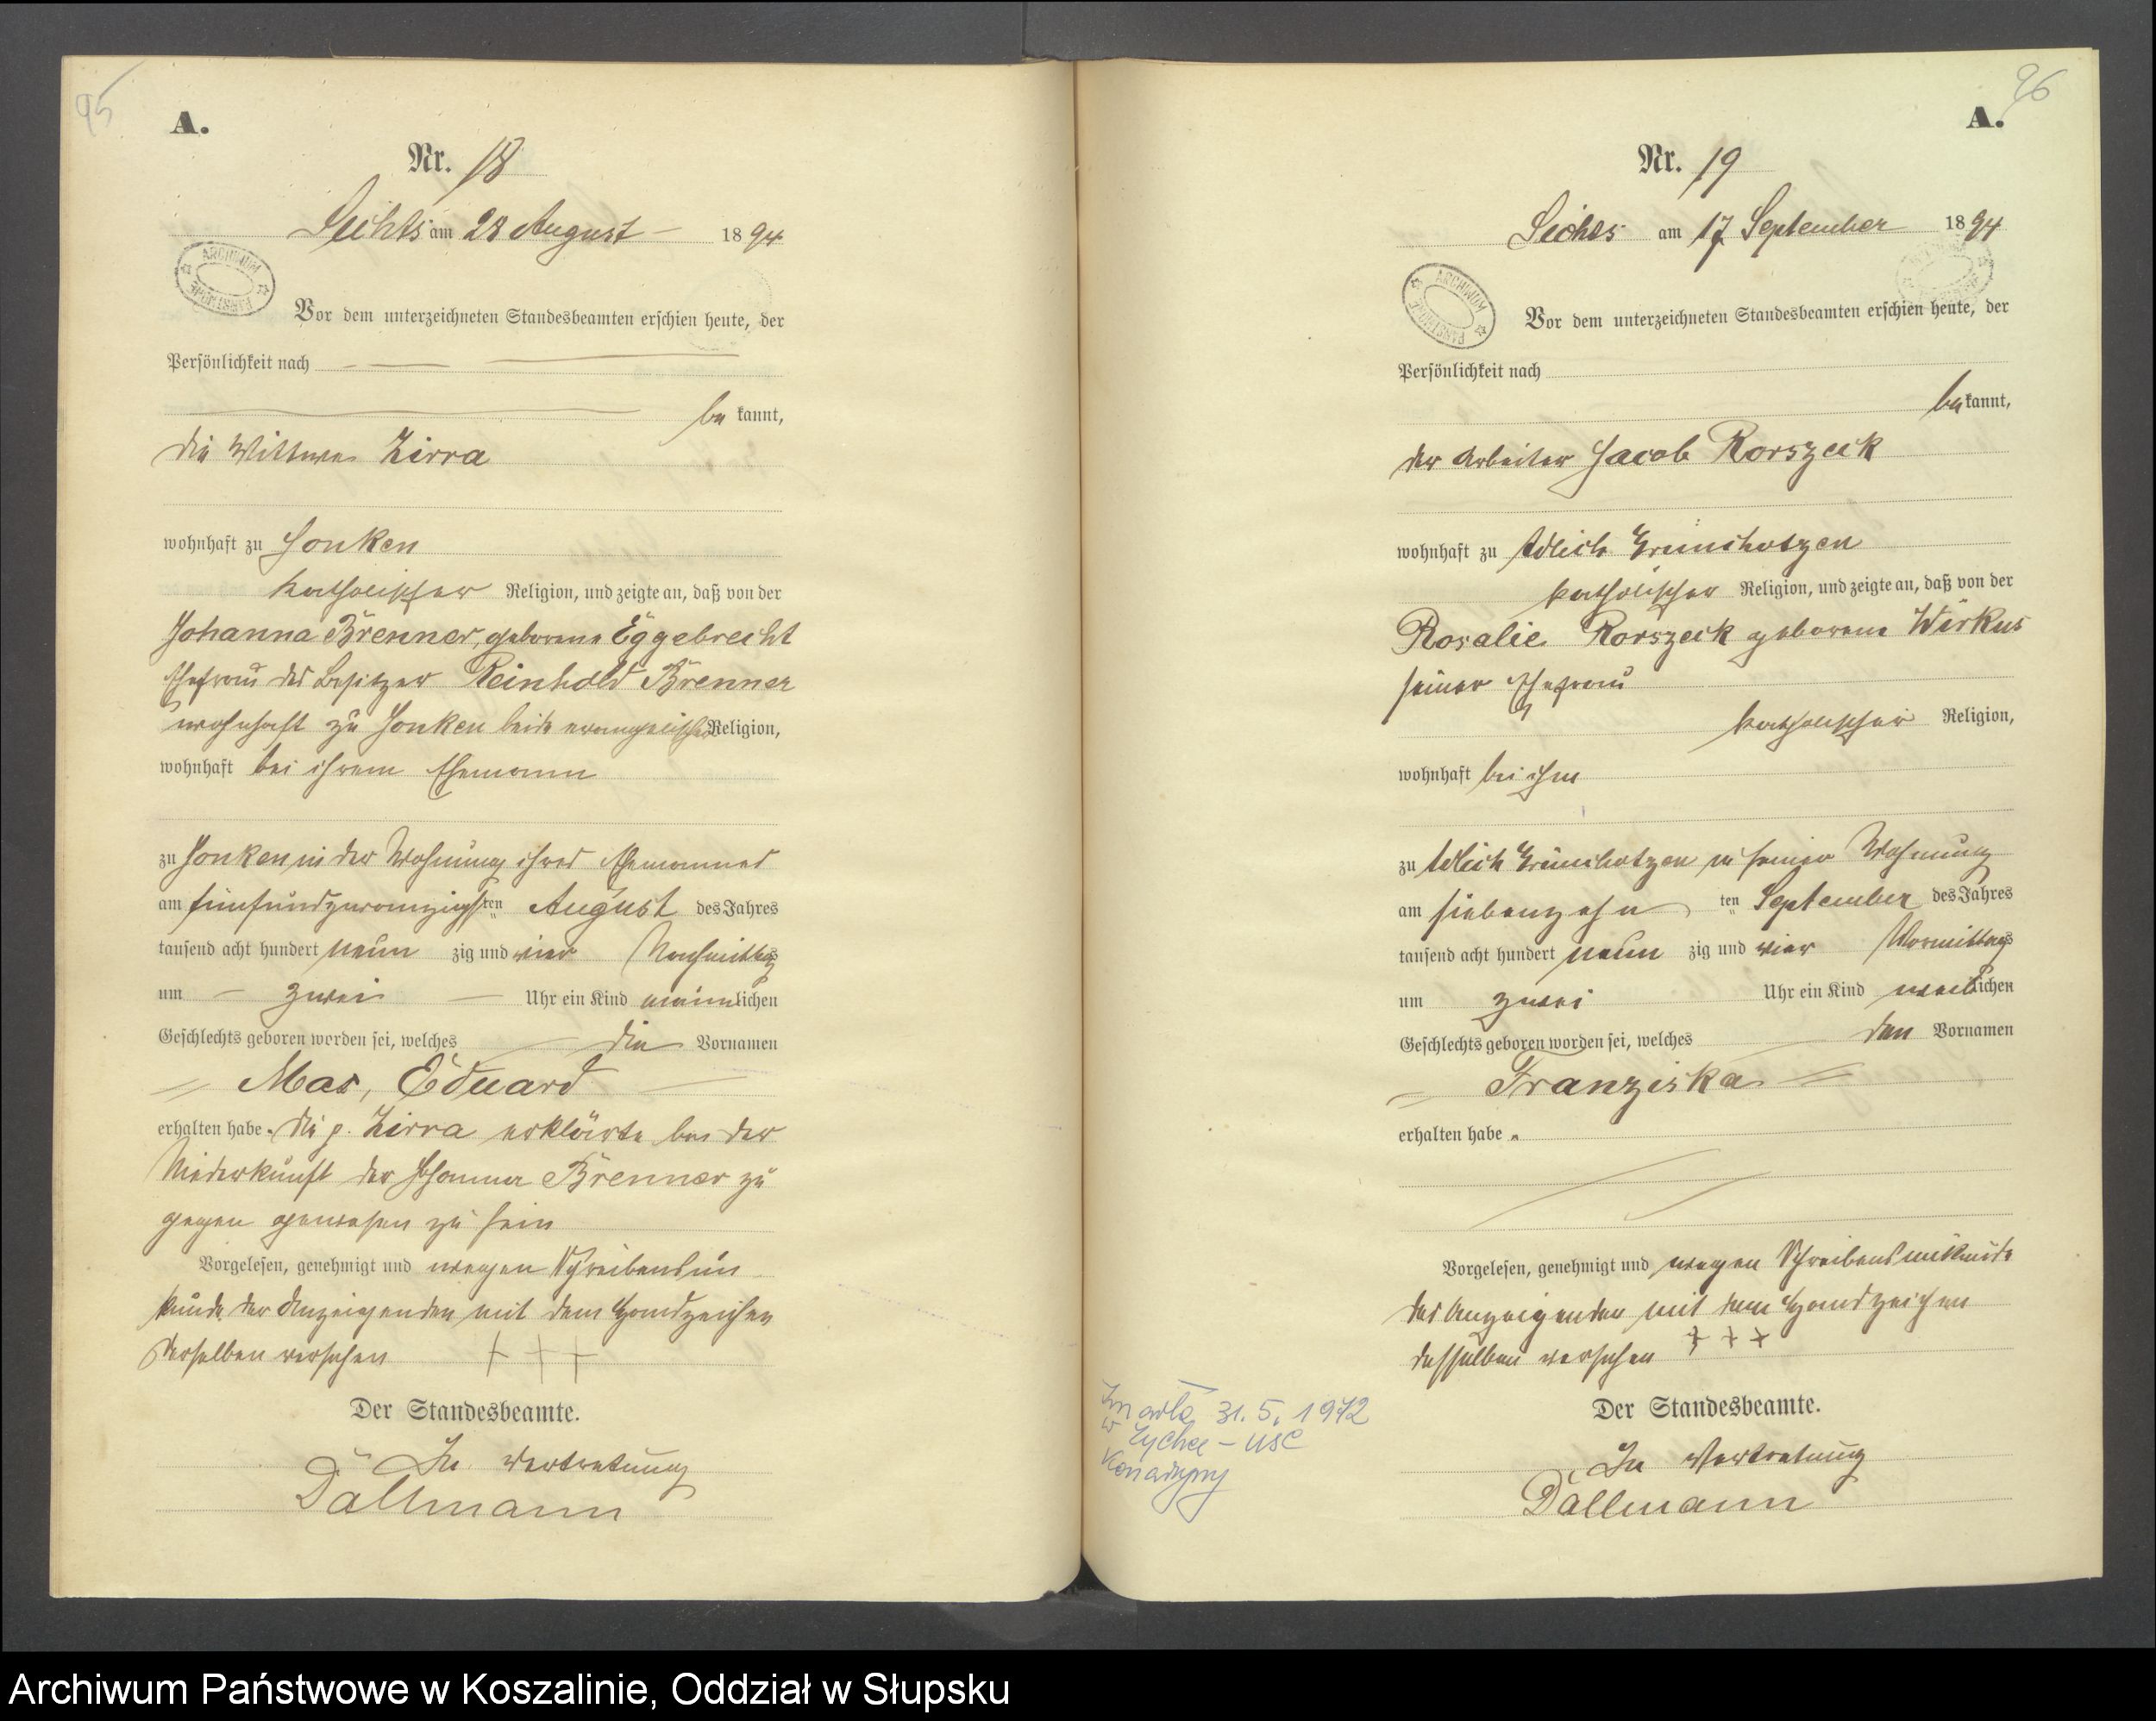 95
A.
Nr. 18
Sichts am 28 August 1894
ARCHIWUM PAŃSTWOWE
Vor dem unterzeichneten Standesbeamten erschien heute, der
Persönlichkeit nach
be kannt,
die Wittwe Zirra
wohnhaft zu Jonken
katholischer Religion, und zeigte an, daß von der
Johanna Brenner, geborene Eggebrecht
Ehefrau des Besitzer Reinhold Brenner
wohnhaft zu Jonken beide evangelischer Religion,
wohnhaft bei ihrem Ehemann
zu Jonken in der Wohnung ihres Ehemannes
am fünfundzwanzigsten August des Jahres
tausend acht hundert neun zig und vier Nachmittags
um zwei Uhr ein Kind männlichen
Geschlechts geboren worden sei, welches die Vornamen
Max, Eduard
erhalten habe. Die p. Zirra erklärte bei der
Niederkunft der Johanna Brenner zu
gegen gewesen zu sein
Vorgelesen, genehmigt und wegen Schreibensun
kunde der Anzeigenden mit dem Handzeichen
derselben versehen + + +
Der Standesbeamte.
In Vertretung
Dallmann
96
A.
Nr. 19
Sichts am 17 September 1894
ARCHIWUM PAŃSTWOWE
Vor dem unterzeichneten Standesbeamten erschien heute, der
Persönlichkeit nach
be kannt,
der Arbeiter Jacob Rorszeck
wohnhaft zu Adlich Briesen
katholischer Religion, und zeigte an, daß von der
Rosalie Rorszeck geborene Wirkus
seiner Ehefrau
katholischer Religion,
wohnhaft bei ihm
zu Adlich in seiner Wohnung
am siebenzehn ten September des Jahres
tausend acht hundert neun zig und vier Vormittags
um zwei Uhr ein Kind weiblichen
Geschlechts geboren worden sei, welches den Vornamen
Franziska
erhalten habe.
Vorgelesen, genehmigt und wegen Schreibensunkunde
des Anzeigenden mit dem Handzeichen
desselben versehen + + +
Der Standesbeamte.
In Vertretung
Dallmann
Zmarła 31.5.1972
w - USC
Konarzyny
Archiwum Państwowe w Koszalinie, Oddział w Słupsku